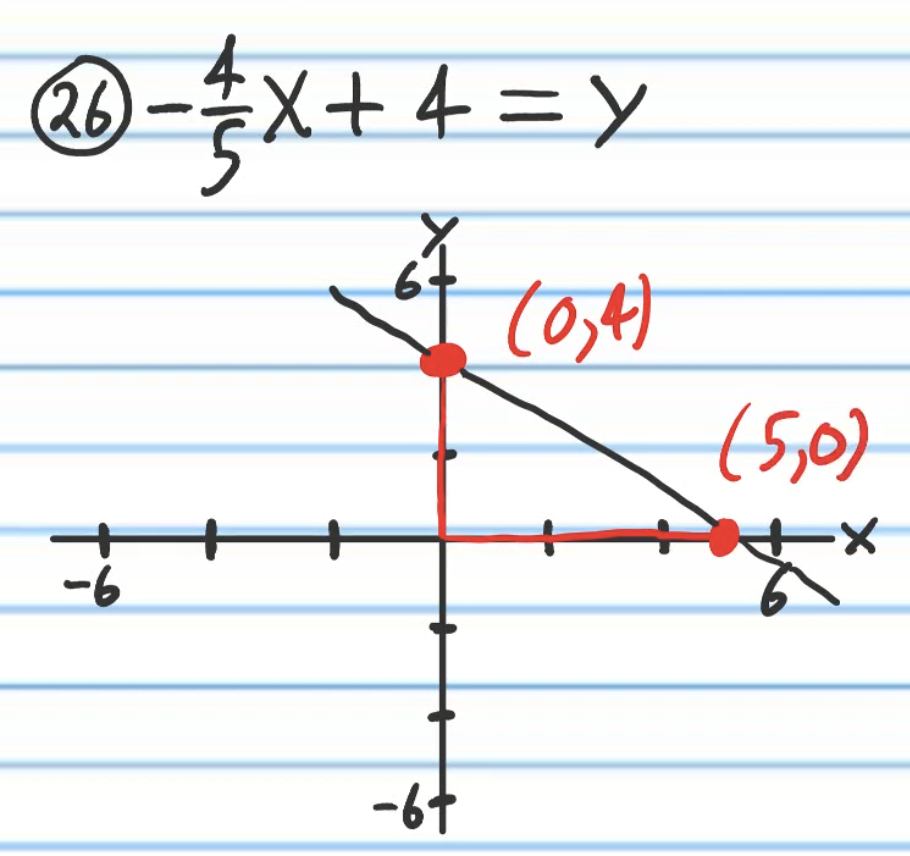 26 -4/5x + 4 = y
y
6
(0,4)
(5,0)
x
-6
6
-6